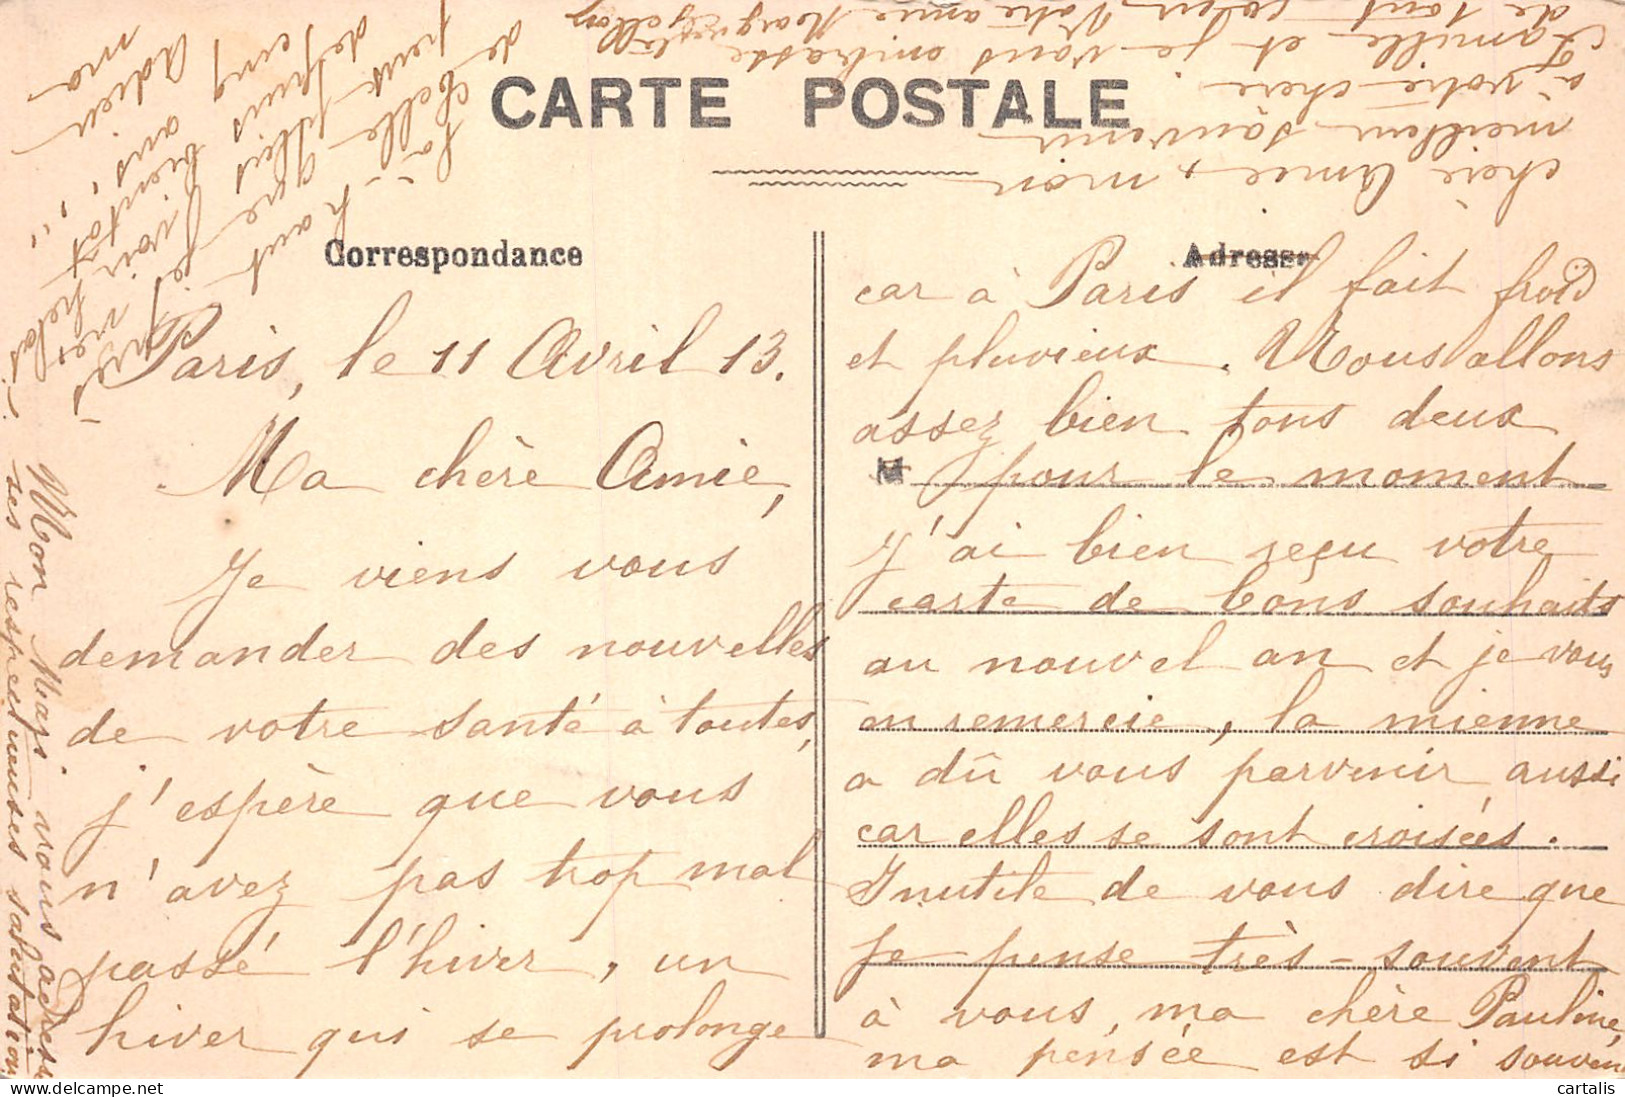 CARTE POSTALE
Correspondance
Adresse
Paris, le 11 Avril 13.
Ma chère Amie,
Je viens vous
demander des nouvelles
de votre santé à toutes,
j'espère que vous
n'avez pas trop mal
passé l'hiver, un
hiver qui se prolonge
car à Paris il fait froid
et pluvieux. Nous allons
assez bien tous deux
M pour le moment
J'ai bien reçu votre
carte de bons souhaits
au nouvel an et je vous
en remercie, la mienne
a dû vous parvenir aussi
car elles se sont croisées.
Inutile de vous dire que
je pense très-souvent
à vous, ma chère Pauline,
ma pensée est si souvent
là-haut
de celle que je ne
peux plus voir
depuis bientôt
cinq ans, hélas!
Adieu
ma
chère Amie, mon
meilleur souvenir
à votre chère
famille et je vous embrasse
de tout cœur, Votre amie
Mon Mari vous adresse
ses respectueuses salutations
cartalis | delcampe.net